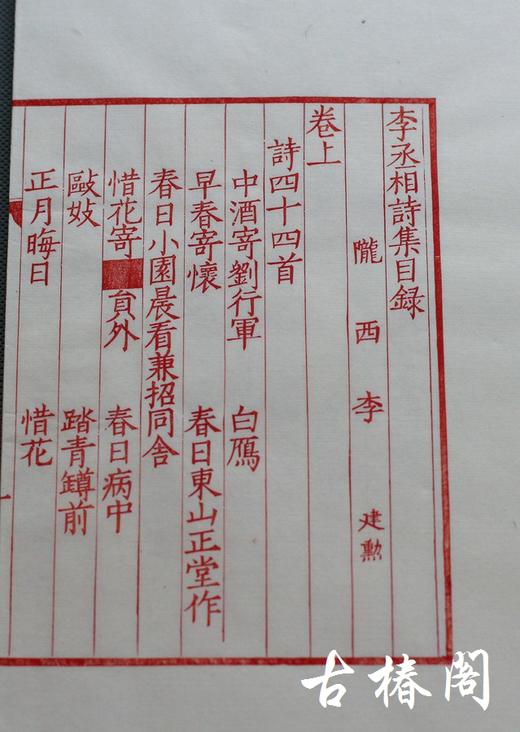 李丞相詩集目録
隴西李建勳
卷上
詩四十四首
中酒寄劉行軍　白鴈
早春寄懷　春日東山正堂作
春日小園晨看兼招同舍
惜花寄■員外　春日病中
毆妓　踏青罇前
正月晦日　惜花
古椿閣